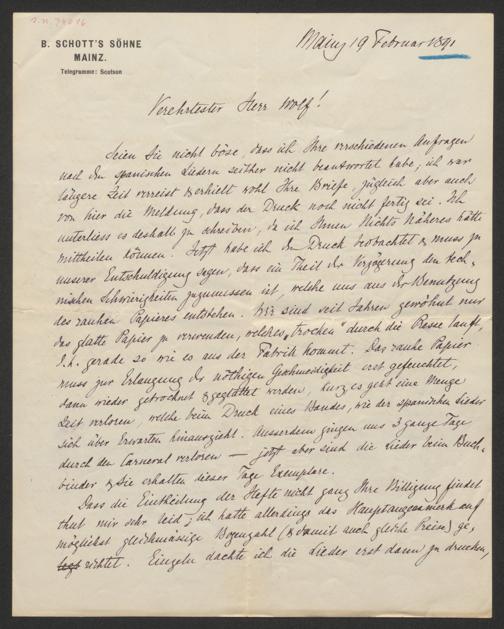 B. SCHOTT'S SÖHNE
MAINZ.
Telegramme: Scotson
Mainz 19 Februar 1891
Verehrtester Herr Wolf!
Seien Sie nicht böse, dass ich Ihre verschiedenen Anfragen
nach den spanischen Liedern seither nicht beantwortet habe; ich war
längere Zeit verreist & erhielt wohl Ihre Briefe, zugleich aber auch
von hier die Meldung, dass der Druck noch nicht fertig sei. Ich
unterliess es deshalb zu schreiben, da ich Ihnen Nichts Näheres hätte
mittheilen können. Jetzt habe ich den Druck beobachtet & muss zu
unserer Entschuldigung sagen, dass ein Theil der Verzögerung den tech-
nischen Schwierigkeiten zuzumessen ist, welche uns aus der Benutzung
des rauhen Papieres entstehen. Wir sind seit Jahren gewöhnt nur
das glatte Papier zu verwenden, welches „trocken“ durch die Presse läuft,
d.h. gerade so wie es aus der Fabrik kommt. Das rauhe Papier
muss zur Erlangung der nöthigen Geschmeidigkeit erst gefeuchtet,
dann wieder getrocknet & geglättet werden, kurz es geht eine Menge
Zeit verloren, welche beim Druck eines Bandes, wie der spanischen Lieder
sich über Erwarten hinauszieht. Ausserdem gingen uns 3 ganze Tage
durch den Carneval verloren — jetzt aber sind die Lieder beim Buch-
binder & Sie erhalten dieser Tage Exemplare.
Dass die Eintheilung der Hefte nicht ganz Ihre Billigung findet
thut mir sehr leid; ich hatte allerdings das Hauptaugenmerk auf
möglichst gleichmässige Bogenzahl (& damit auch gleiche Preise) ge-
richtet. Einzeln dachte ich die Lieder erst dann zu drucken,